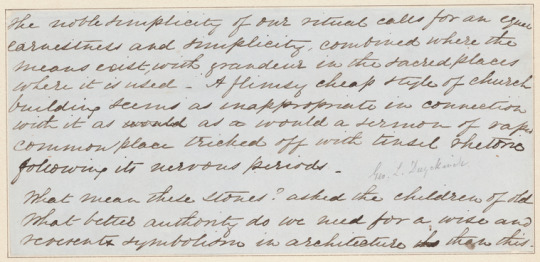 The noble simplicity of our ritual calls for an equal
earnestness and simplicity, combined where the
means exist, with grandeur in the sacred places
where it is used - A flimsy cheap style of church
building seems as inappropriate in connection
with it as would as a would a sermon of
commonplace tricked off with tinsel rhetoric
following its nervous periods.
Geo. L. Duyckinck
What mean these stones? asked the children of old
What better authority do we need for a wise and
reverent symbolism in architecture than this.